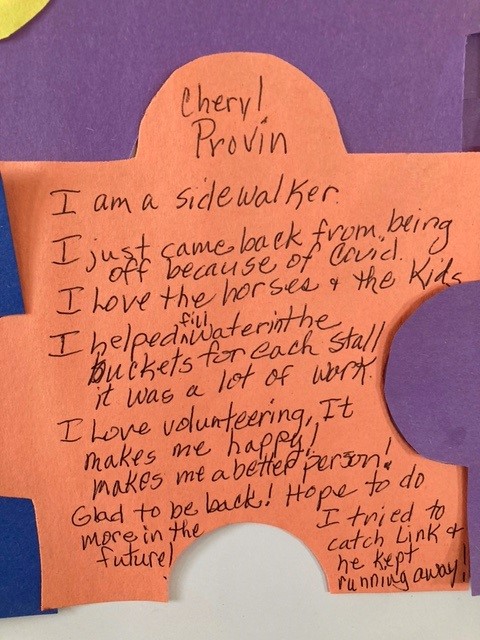 Cheryl
Provin
I am a sidewalker.
I just came back from being
off because of Covid.
I Love the horses & the Kids
I helped fill water in the
buckets for each stall
it was a lot of work.
I Love volunteering, It
makes me happy!
makes me a better person!
Glad to be back! Hope to do
more in the
future!
I tried to
catch Link &
he kept
running away!